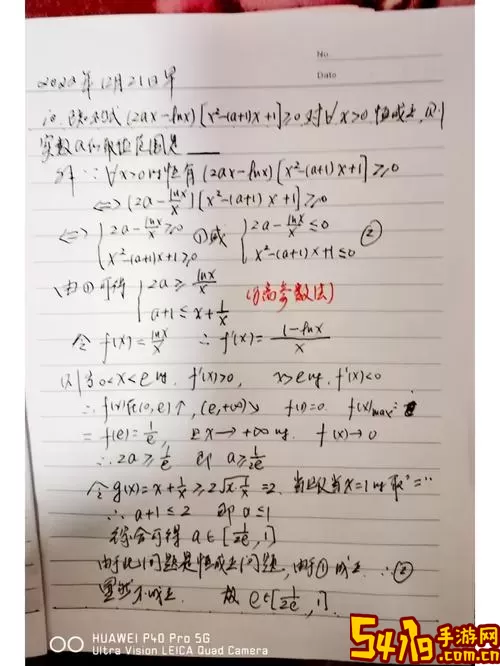 No
Date
2020年12月21日早
记. 已知不等式 (2ax-lnx)[x²-(a+1)x+1]≥0 对∀x>0 恒成立, 则
实数a的取值范围是____
解 ∵ ∀x>0时恒有 (2ax-lnx)[x²-(a+1)x+1]≥0
⟺ (2a-lnx/x)[x²-(a+1)x+1]≥0
⟺ {2a-lnx/x≥0 x²-(a+1)x+1≥0 ①或 {2a-lnx/x≤0 x²-(a+1)x+1≤0 ②
由①可得 {2a≥lnx/x a+1≤x+1/x (分离参数法)
令 f(x)=lnx/x ∴ f'(x)=(1-lnx)/x
则当0<x<e时. f'(x)>0, x>e时. f'(x)<0
∴ f(x)在(0,e)↑, (e,+∞)↘ f(1)=0. f(x)max
= f(e)=1/e, x→+∞时. f(x)→0
∴ 2a≥1/e 即 a≥1/2e
令 g(x)=x+1/x≥2√x·1/x=2. 当且仅当x=1时取"="
∴ a+1≤2 即 a≤1
综合可得 a∈[1/2e, 1]
由于此问题是恒成立问题, 由于①成立 ∴②
显然不成立. 故 a∈[1/2e, 1].
HUAWEI P40 Pro 5G
Ultra Vision LEICA Quad Camera
541g手游网
.com.cn